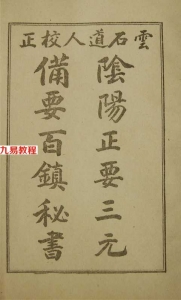 雲石道人校正
陰陽正要三元
備要百鎮秘書
九易教程
www.999937.com